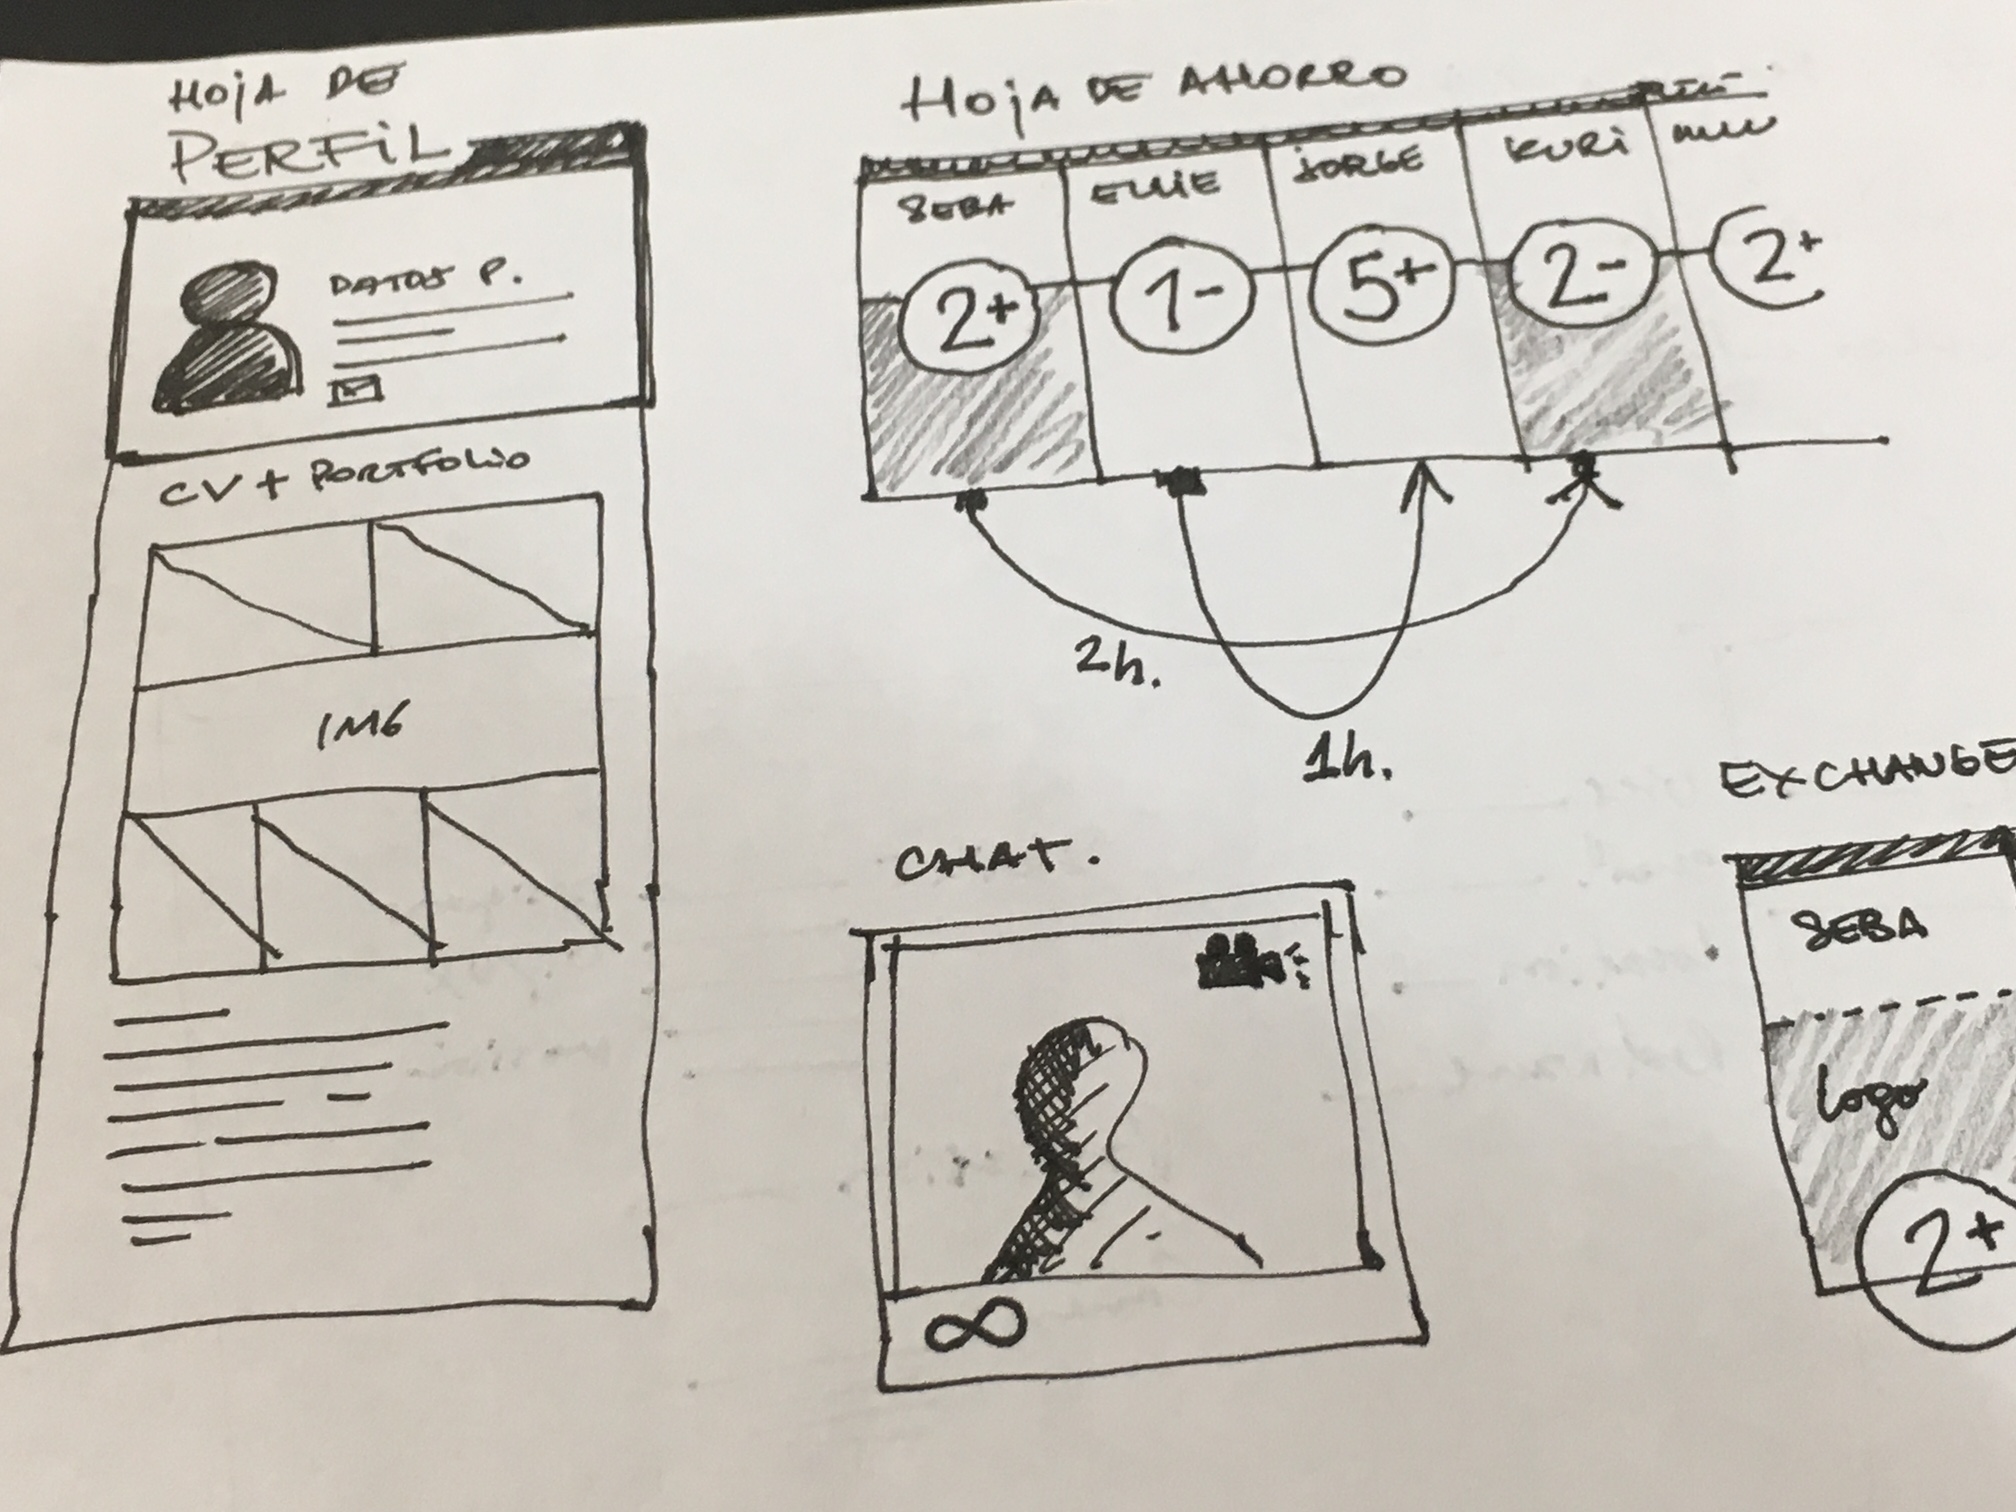 HOJA DE
PERFIL
DATOS P.
CV + PORTFOLIO
IMG
HOJA DE AHORRO
SEBA
ELLIE
JORGE
KURI
2+
1-
5+
2-
2+
2h.
1h.
CHAT.
∞
EXCHANGE
SEBA
logo
2+